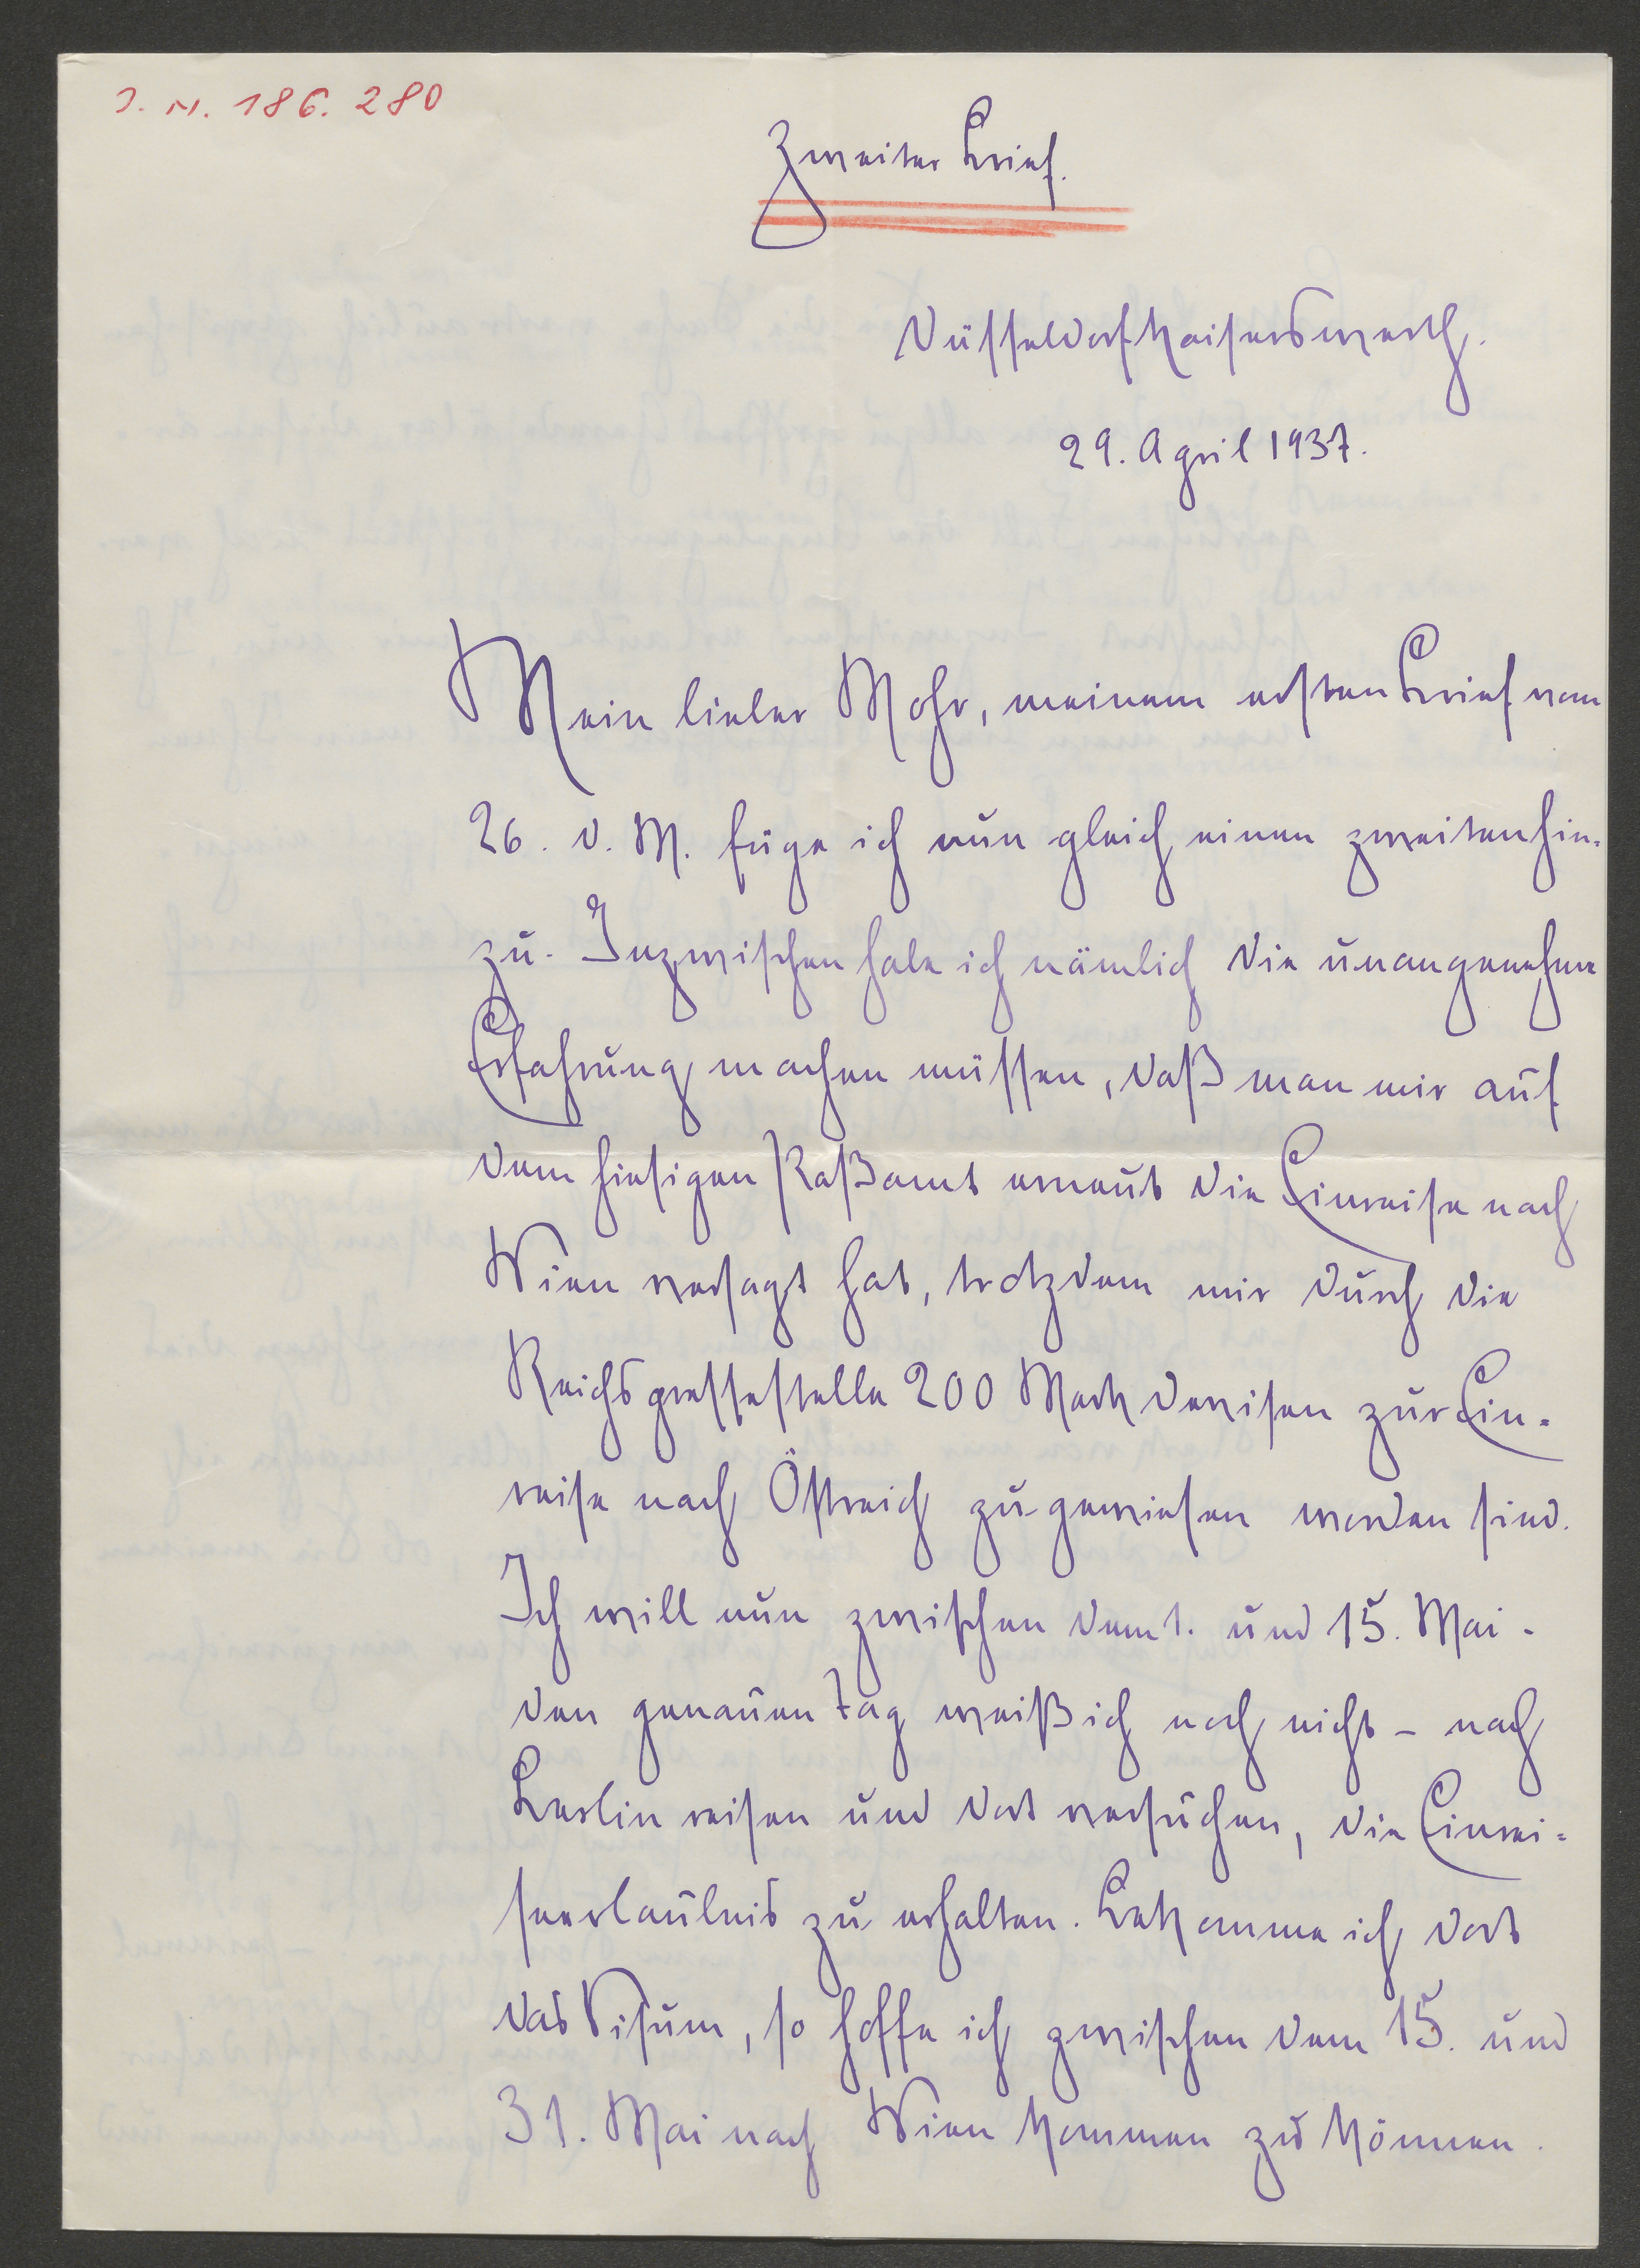 J. N. 186.280
Zweiter Brief.
Düsseldorf Kaiserswerth.
29. April 1937.
Mein lieber Mohr, meinem ersten Brief vom
26. d. M. füge ich nun gleich einen zweiten hin-
zu. Inzwischen habe ich nämlich die unangenehme
Erfahrung machen müssen, daß man mir auf
dem hiesigen Paßamt erneut die Einreise nach
Wien versagt hat, trotzdem mir durch die
Reichspressestelle 200 Mark Devisen zur Ein-
reise nach Östreich zugewiesen worden sind.
Ich will nun zwischen dem 1. und 15. Mai -
den genauen Tag weiß ich noch nicht - nach
Berlin reisen und dort versuchen, die Einrei-
seerlaubnis zu erhalten. Bekomme ich dort
das Visum, so hoffe ich zwischen dem 15. und
31. Mai nach Wien kommen zu können.